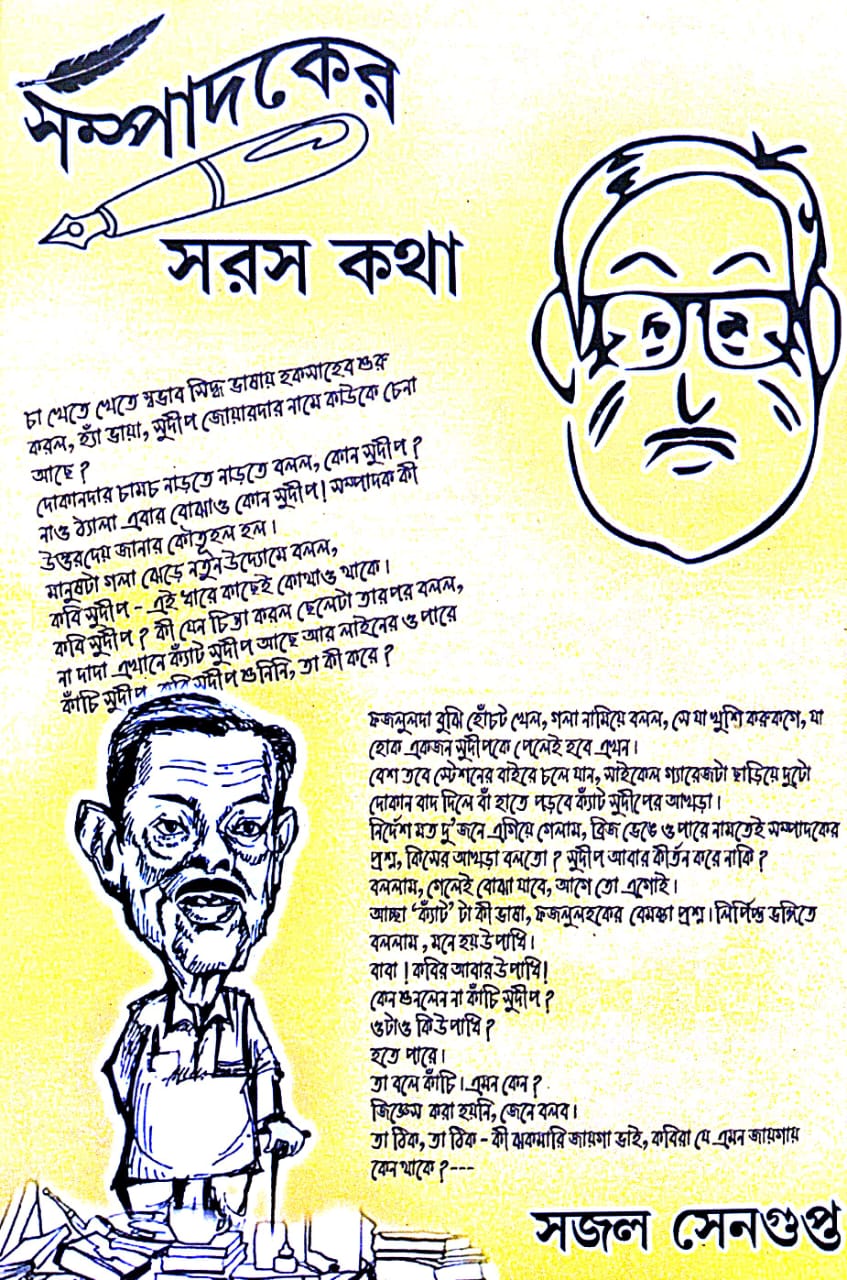 সম্পাদকের
সরস কথা
চা খেতে খেতে স্বভাব সিদ্ধ ভাষায় হকসাহেব শুরু
করল, হ্যাঁ ভায়া, সুদীপ জোয়ারদার নামে কাউকে চেনা
আছে ?
দোকানদার চামচ নাড়তে নাড়তে বলল, কোন সুদীপ ?
নাও ঠ্যালা এবার বোঝাও কোন সুদীপ! সম্পাদক কী
উত্তরদেয় জানার কৌতূহল হল।
মানুষটা গলা ঝেড়ে নতুন উদ্যোমে বলল,
কবি সুদীপ - এই ধারে কাছেই কোথাও থাকে।
কবি সুদীপ ? কী যেন চিন্তা করল ছেলেটা তারপর বলল,
না দাদা এখানে ক্যাঁট সুদীপ আছে আর লাইনের ওপারে
কাঁচি সুদীপ, কবি সুদীপ শুনিনি, তা কী করে ?
ফজলুলদা বুঝি হোঁচট খেল, গলা নামিয়ে বলল, সে যা খুশি করুকগে, যা
হোক একজন সুদীপকে পেলেই হবে এখন।
বেশ তবে স্টেশনের বাইরে চলে যান, সাইকেল গ্যারেজটা ছাড়িয়ে দুটো
দোকান বাদ দিলে বাঁ হাতে পড়বে ক্যাঁট সুদীপের আখড়া।
নির্দেশ মত দু'জনে এগিয়ে গেলাম, ব্রিজ ভেঙে ওপারে নামতেই সম্পাদকের
প্রশ্ন, কিসের আখড়া বলতো ? সুদীপ আবার কীর্তন করে নাকি ?
বললাম, গেলেই বোঝা যাবে, আগে তো এগোই।
আচ্ছা 'ক্যাঁট' টা কী ভাষা, ফজলুলহকের বেমক্কা প্রশ্ন। নির্লিপ্ত ভঙ্গিতে
বললাম, মনে হয় উপাধি।
বাবা ! কবির আবার উপাধি!
কেন শুনলেন না কাঁচি সুদীপ ?
ওটাও কি উপাধি ?
হতে পারে।
তা বলে কাঁচি। এমন কেন ?
জিজ্ঞেস করা হয়নি, জেনে বলব।
তা ঠিক, তা ঠিক - কী ঝকমারি জায়গা ভাই, কবিরা যে এমন জায়গায়
কেন থাকে ?---
সজল সেনগুপ্ত